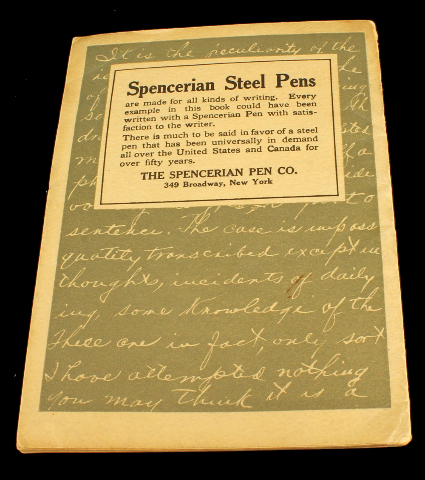 It is the peculiarity of the
Spencerian Steel Pens
are made for all kinds of writing. Every
example in this book could have been
written with a Spencerian Pen with satis-
faction to the writer.
There is much to be said in favor of a steel
pen that has been universally in demand
all over the United States and Canada for
over fifty years.
THE SPENCERIAN PEN CO.
349 Broadway, New York
sentence. The case is imposs
quatity transcribed except in
thought, incidents of daily
ing, some knowledge of the
These are in fact, only sort
I have attempted nothing
you may think it is a